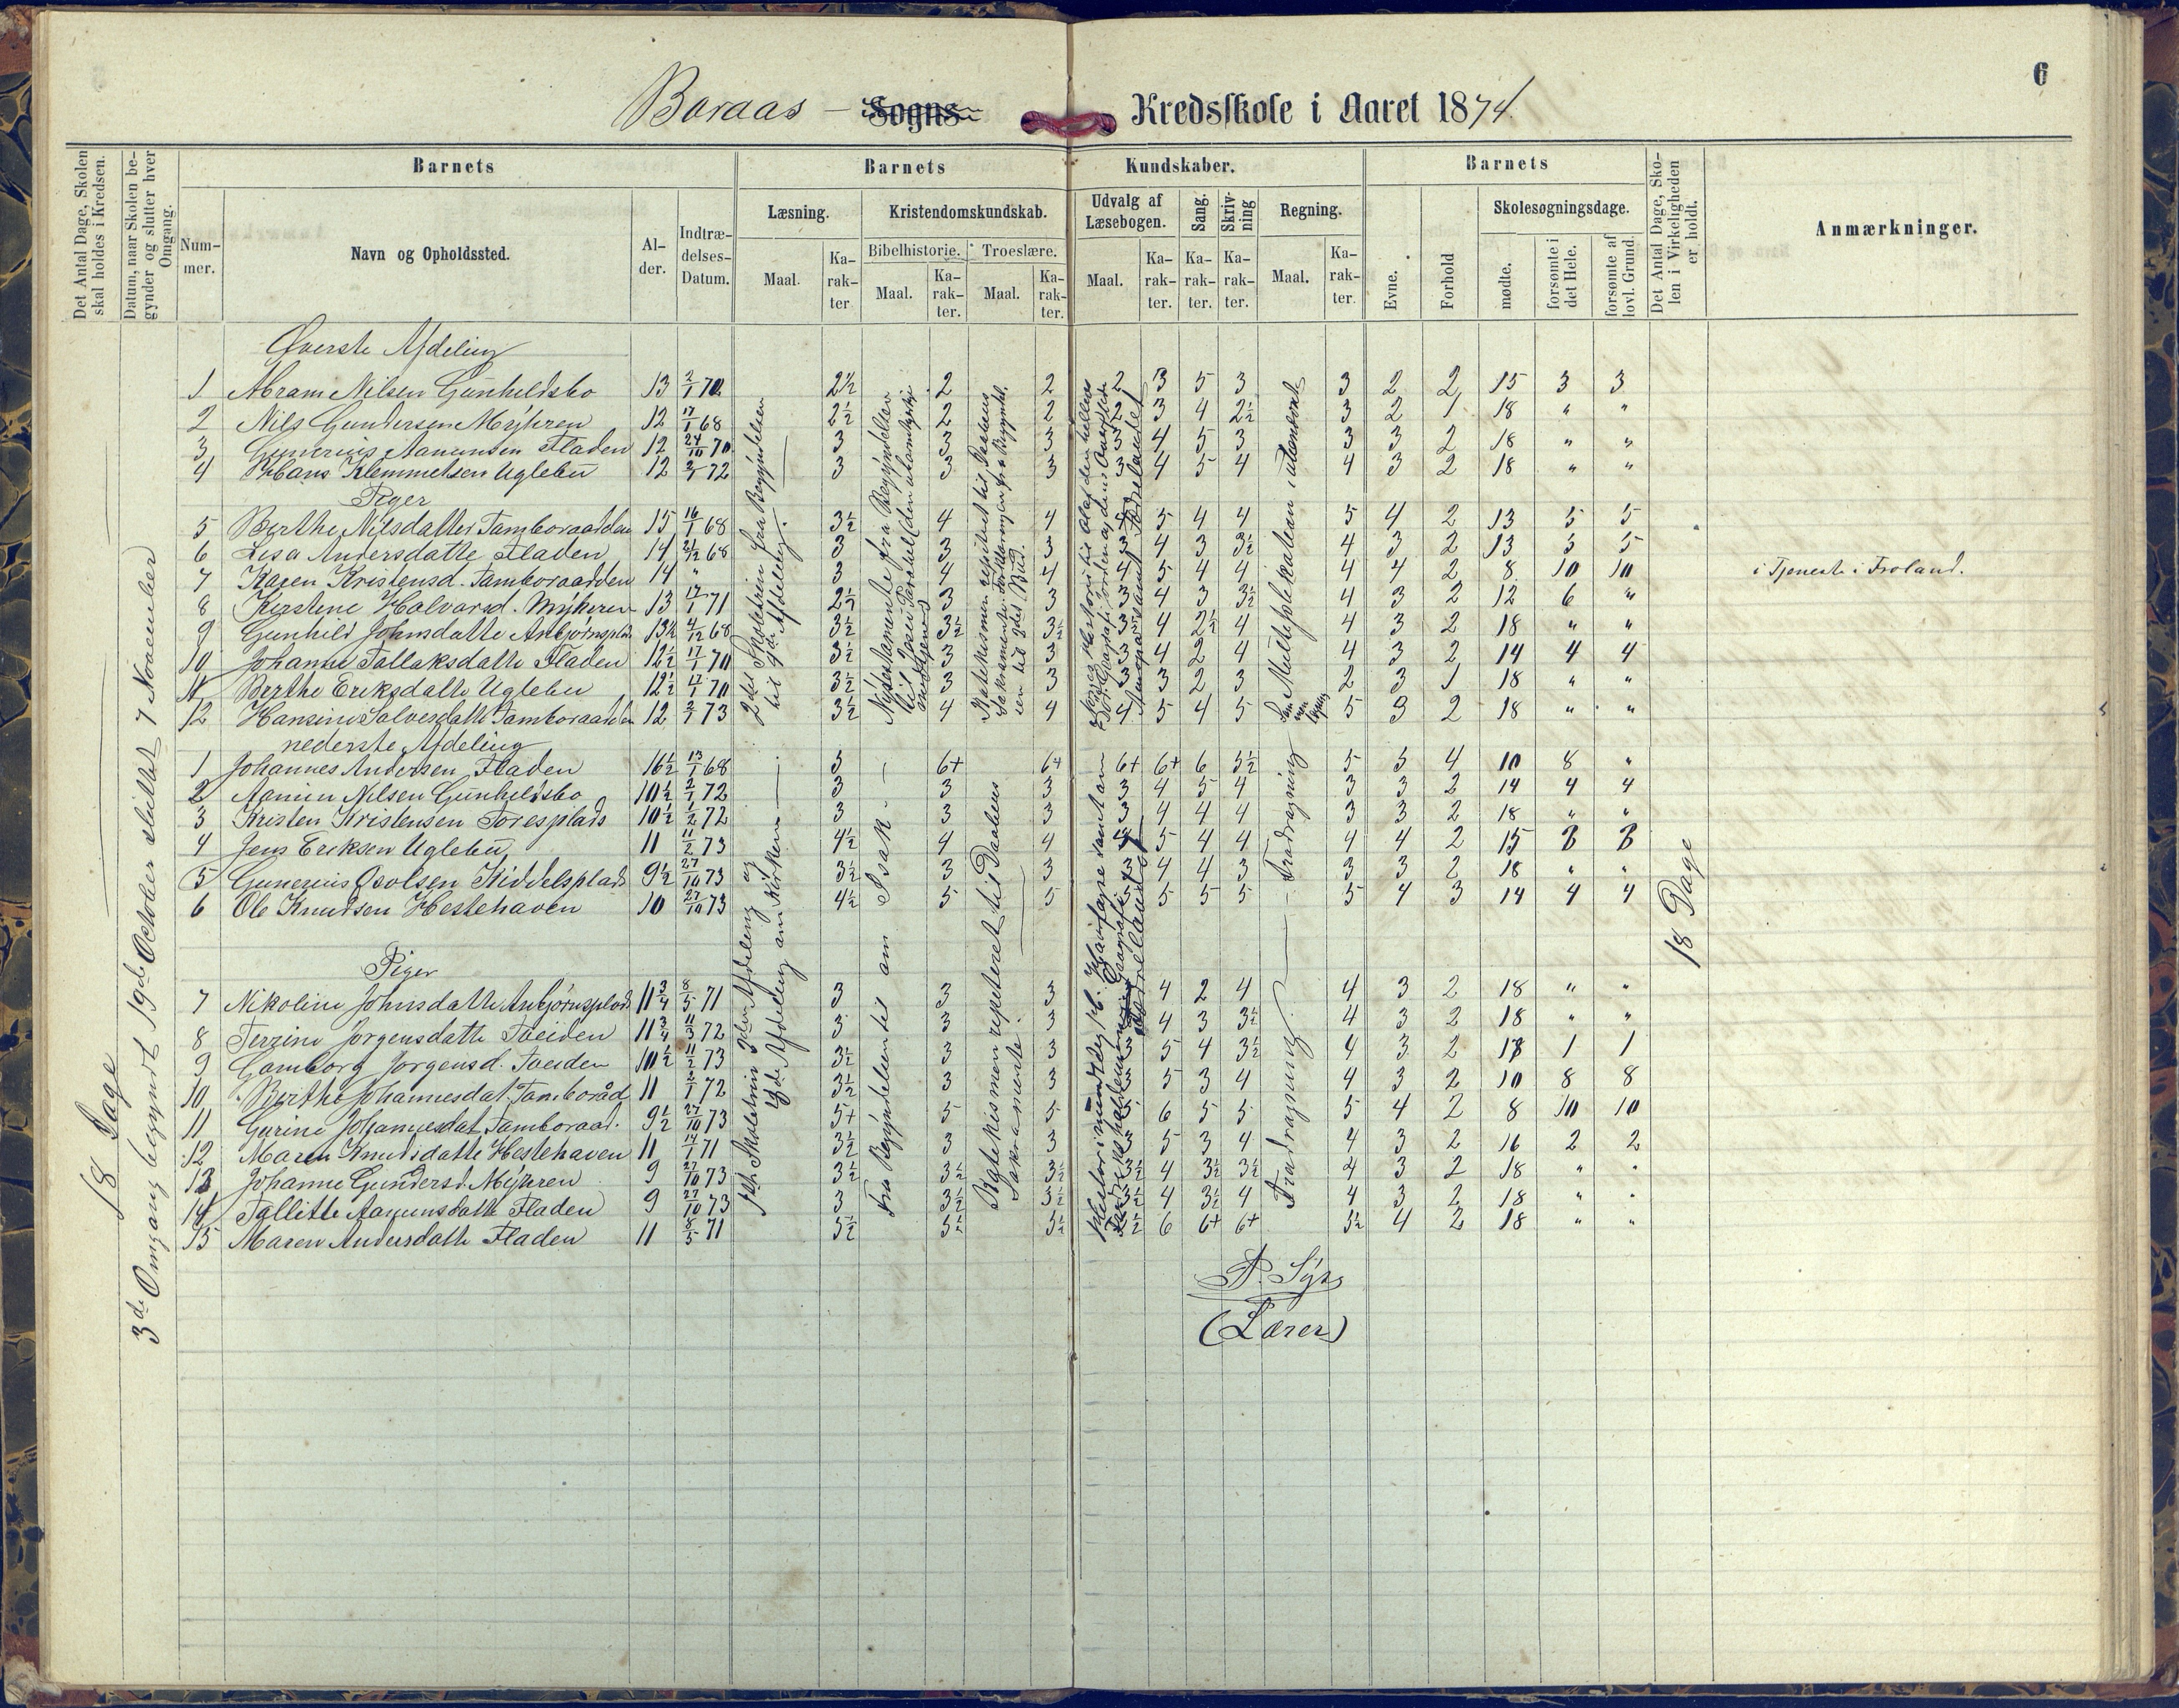 6
Boraas - Sogns Kredsskole i Aaret 1874.
Det Antal Dage, Skolen skal holdes i Kredsen.
Datum, naar Skolen begynder og slutter hver Omgang.
Barnets
Barnets Kundskaber.
Barnets
Det Antal Dage, Skolen i Virkeligheden er holdt.
Anmærkninger.
Nummer.
Navn og Opholdssted.
Alder.
Indtrædelses-Datum.
Læsning.
Kristendomskundskab.
Udvalg af Læsebogen.
Sang.
Skrivning
Regning.
Evne.
Forhold
Skolesøgningsdage.
Bibelhistorie. Troeslære.
Maal. Karakter Maal. Karakter. Maal. Karakter. Maal. Karakter. Karakter. Karakter. Maal. Karakter.
mødte. forsømte i det Hele. forsømte af lovl. Grund.
18 Dage
3de Omgang begyndt 19de October sluttet 7 November
Øverste Afdeling
1 Abram Nilsen Gunheldsbo 13 2/1 70 2½ 2 2 2 3 5 3 3 2 2 15 3 3
2 Nils Gundersen Mykren 12 17/1 68 2½ 2 2 2 3 4 2½ 3 2 1 18 " "
3 Gunerius Aanunsen Fladen 12 24/10 70 3 3 3 3 4 5 3 3 3 2 18 " "
4 Hans Klemmetsen Uglebu 12 2/1 72 3 3 3 3 4 5 4 4 3 2 18 " "
Piger
5 Berthe Nilsdatter Tamboraadden 15 16/1 68 3½ 4 4 5 4 4 5 4 2 13 5 5
6 Lisa Andersdatte Fladen 14 3 3 3 3 4 3 3½ 4 3 2 13 5 5
7 Karen Kristensd. Tamboraadden 14 " 3 4 4 4 5 4 4 4 4 2 8 10 10 i Tjeneste i Froland.
8 Kirstine Halvorsd. Mykren 13 17/1 71 2½ 3 3 3 4 3 3½ 4 3 2 12 6 "
9 Gunhild Johnsdatte Asbjørnsplds 13½ 4/12 68 3½ 3½ 3½ 3 4 2½ 4 4 3 2 18 " "
10 Johanne Tallaksdatte Fladen 12½ 17/1 70 3½ 3 3 3 4 2 4 4 3 2 14 4 4
11 Berthe Eriksdatte Uglebu 12½ 17/1 70 3½ 3 3 3 3 2 3 2 3 1 18 " "
12 Hansine Salvesdatte Tamboraadden 12 2/1 73 3½ 4 4 4 5 4 5 5 3 2 18 " "
nederste Afdeling
1 Johannes Andersen Fladen 16½ 13/1 68 5 6+ 6+ 6+ 6+ 6 5½ 5 5 4 10 8 "
2 Aanun Nilsen Gunheldsbo 10½ 2/1 72 3 3 3 3 4 5 4 3 3 2 14 4 4
3 Kristen Kristensen Toresplads 10½ 1/2 72 3 3 3 3 4 4 4 3 3 2 18 " "
4 Jens Eriksen Uglebu 11 11/2 73 4½ 4 4 4 5 4 4 4 4 2 15 3 3
5 Gunerius Osolsen Kiddelsplads 9½ 27/10 73 3½ 3 3 3 4 4 3 3 3 2 18 " "
6 Ole Knudsen Hestehaven 10 27/10 73 4½ 5 5 5 5 5 5 5 4 3 14 4 4
18 Dage
Piger
7 Nikoline Johnsdatte Asbjørnsplads 11¾ 8/5 71 3 3 3 4 2 4 4 3 2 18 " "
8 Terrine Jorgensdatte Toeiden 11¾ 11/3 72 3 3 3 4 3 3½ 4 3 2 18 " "
9 Gamborg Jorgensd. Toeiden 10½ 11/2 73 3½ 3 3 3 5 4 3½ 4 3 2 17 1 1
10 Berthe Johannesdat. Tamboråd 11 2/1 72 3½ 3 3 3 5 3 4 4 3 2 10 8 8
11 Gurine Johannesdat Tamboraad. 9½ 27/10 73 5+ 5 5 5 6 5 5 5 4 2 8 10 10
12 Maren Knudsdatte Hestehaven 11 14/1 71 3½ 3 3 3 5 3 4 4 3 2 16 2 2
13 Johanne Gundersd. Mykren 9 27/10 73 3½ 3½ 3½ 3½ 4 3½ 3½ 4 3 2 18 " "
14 Tallette Aanunsdatte Fladen 9 27/10 73 3 3½ 3½ 3½ 4 3½ 4 4 3 2 18 " "
15 Maren Andersdatte Fladen 11 8/5 71 5½ 5½ 5½ 5½ 6 6+ 6+ 5½ 4 2 18 " "
2det Skoletrin fra Begyndelsen til 4de Afdeling.
Katekismen repeteret til Daabens Sakramente.
Multiplikation i
1ste Skoletrin 3die Afdeling og 4de Afdeling om Kirken
Fra Begyndelsen til om Isak
Katekismen repeteret til Daabens Sakramente.
Fradragning
Fradragning
(Lærer)